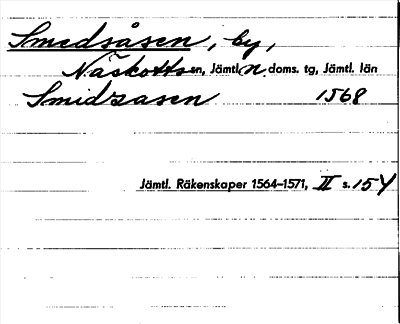 Smedsåsen, by,
Näskotts sn, Jämtl. n doms. tg, Jämtl. län
Smidzasen 1568
Jämtl. Räkenskaper 1564–1571, II s. 154